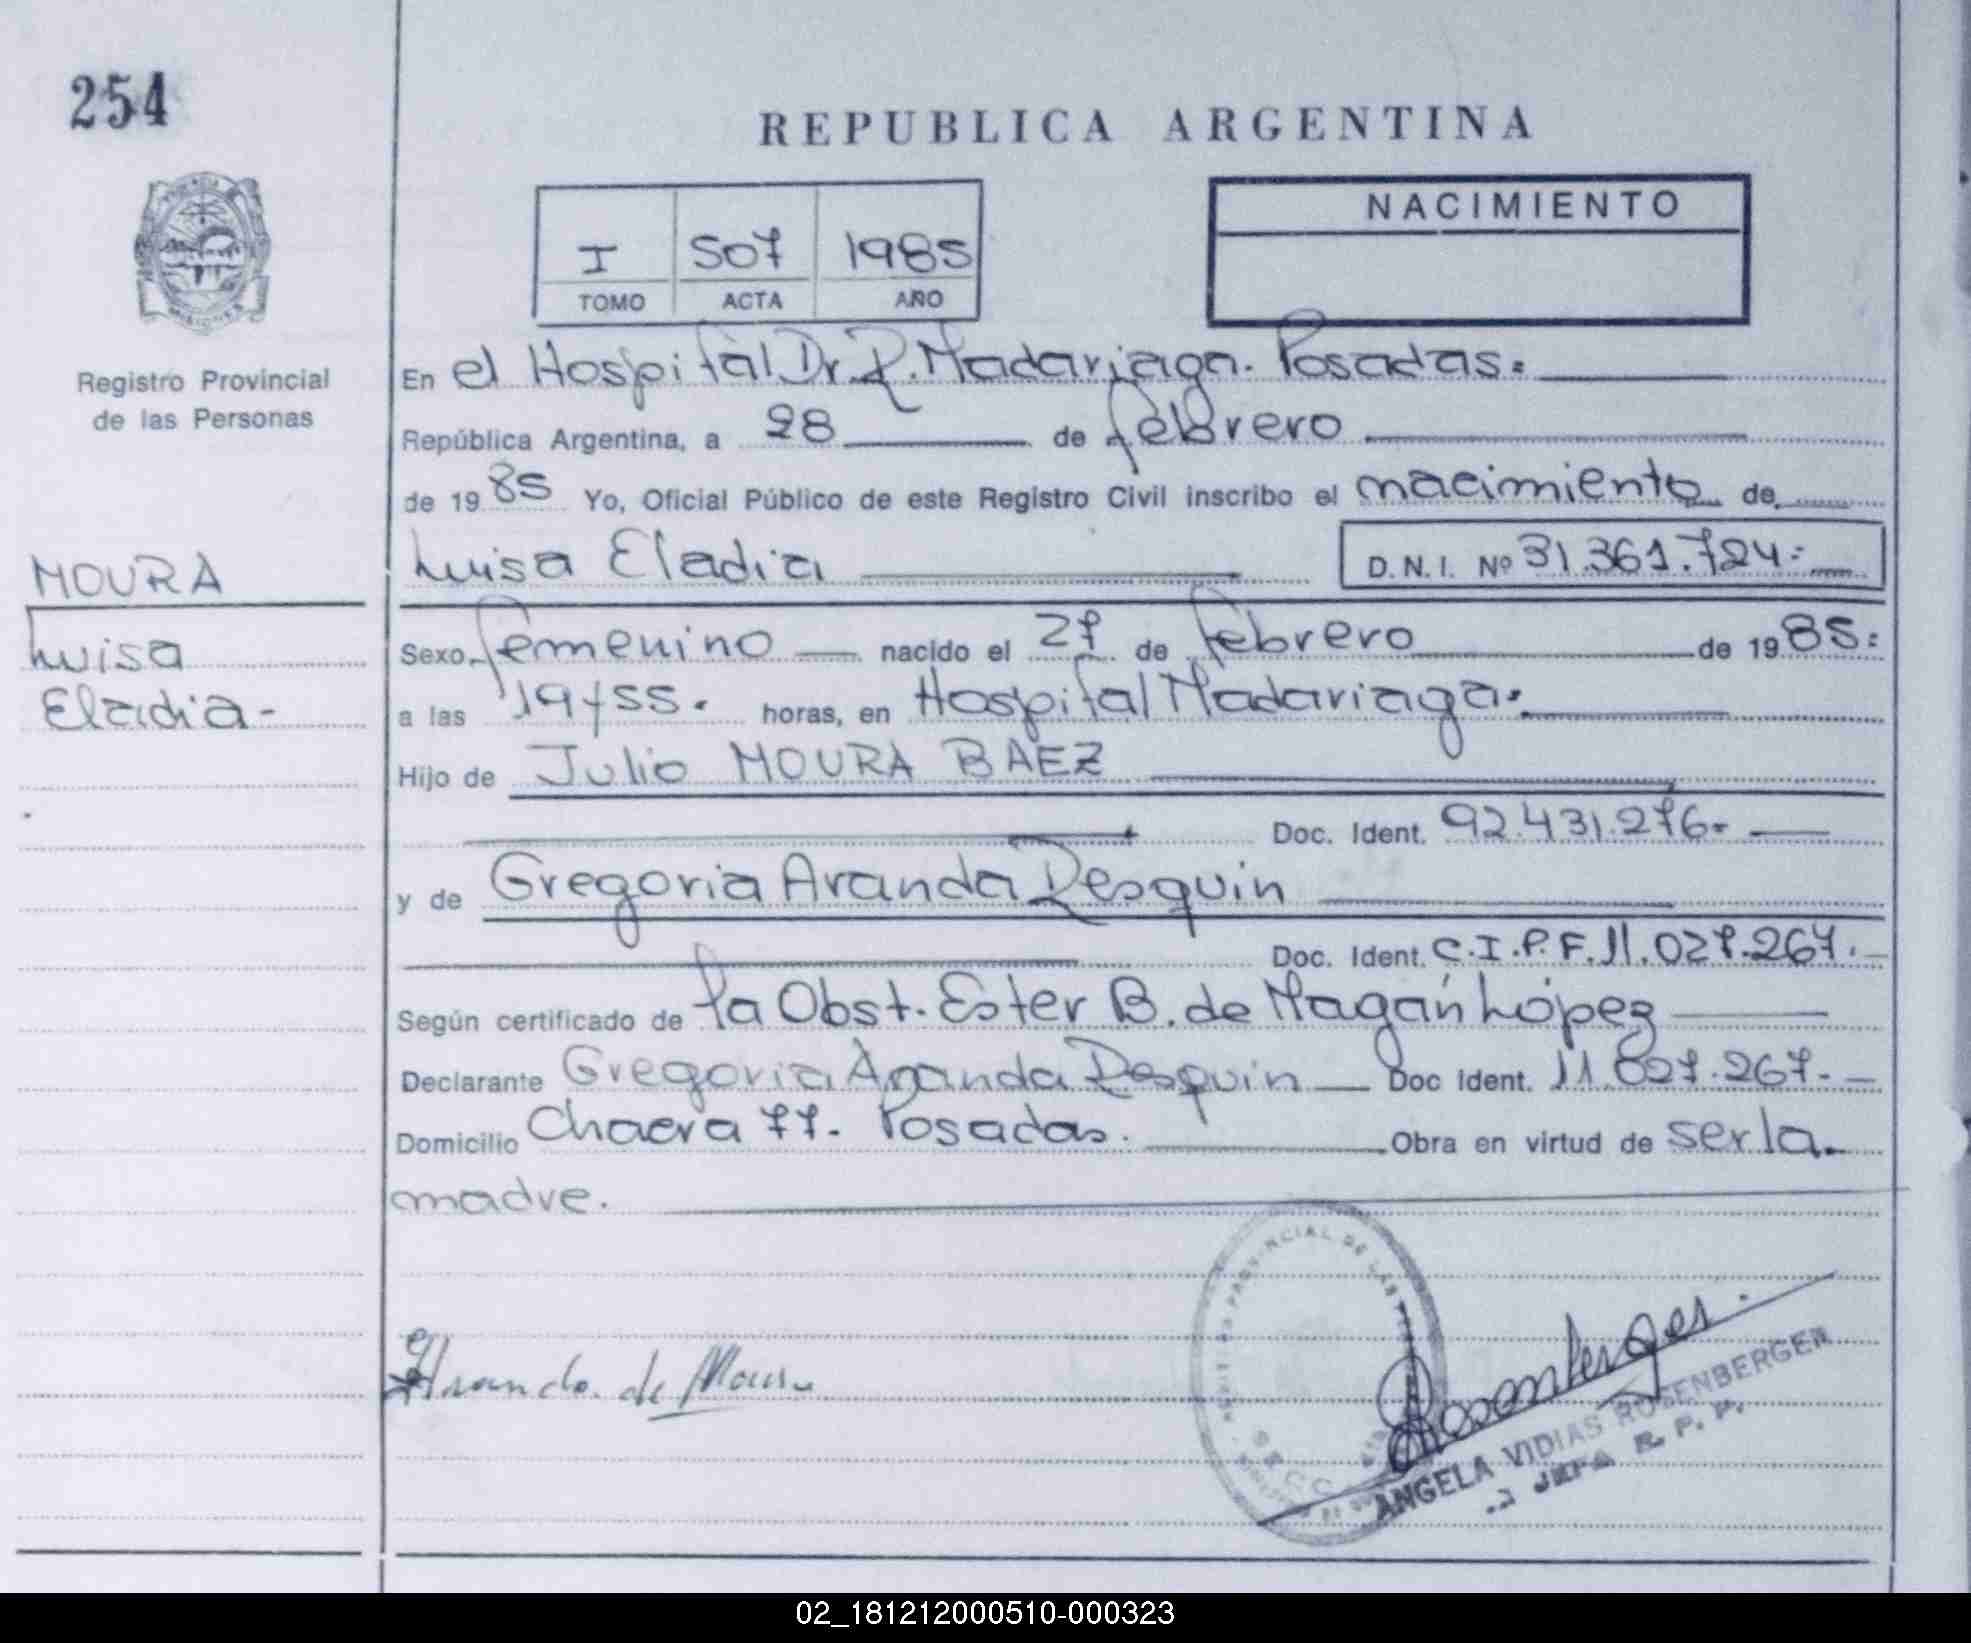 254
REPUBLICA ARGENTINA
NACIMIENTO
I 507 1985
TOMO ACTA AÑO
Registro Provincial
de las Personas
En el Hospital Dr. R. Madariaga. Posadas.
República Argentina, a 28 de febrero
de 1985 Yo, Oficial Público de este Registro Civil inscribo el nacimiento de
MOURA
Luisa Eladia D.N.I. Nº 31.361.724.
Luisa
Eladia-
Sexo femenino nacido el 27 de febrero de 1985:
a las 19 y 55. horas, en Hospital Madariaga.
Hijo de Julio MOURA BAEZ
Doc. Ident. 92.431.276-
y de Gregoria Aranda Resquin
Doc. Ident. C.I.P.F. 11.027.267.
Según certificado de la Obst. Ester B. de Magán López
Declarante Gregoria Aranda Resquin Doc Ident. 11.027.267.
Domicilio Chacra 77. Posadas. Obra en virtud de ser la
madre.
Aranda de Moura
Rosenberger
ANGELA VIDIAS ROSENBERGER
JEFA R. P. P.
02_181212000510-000323